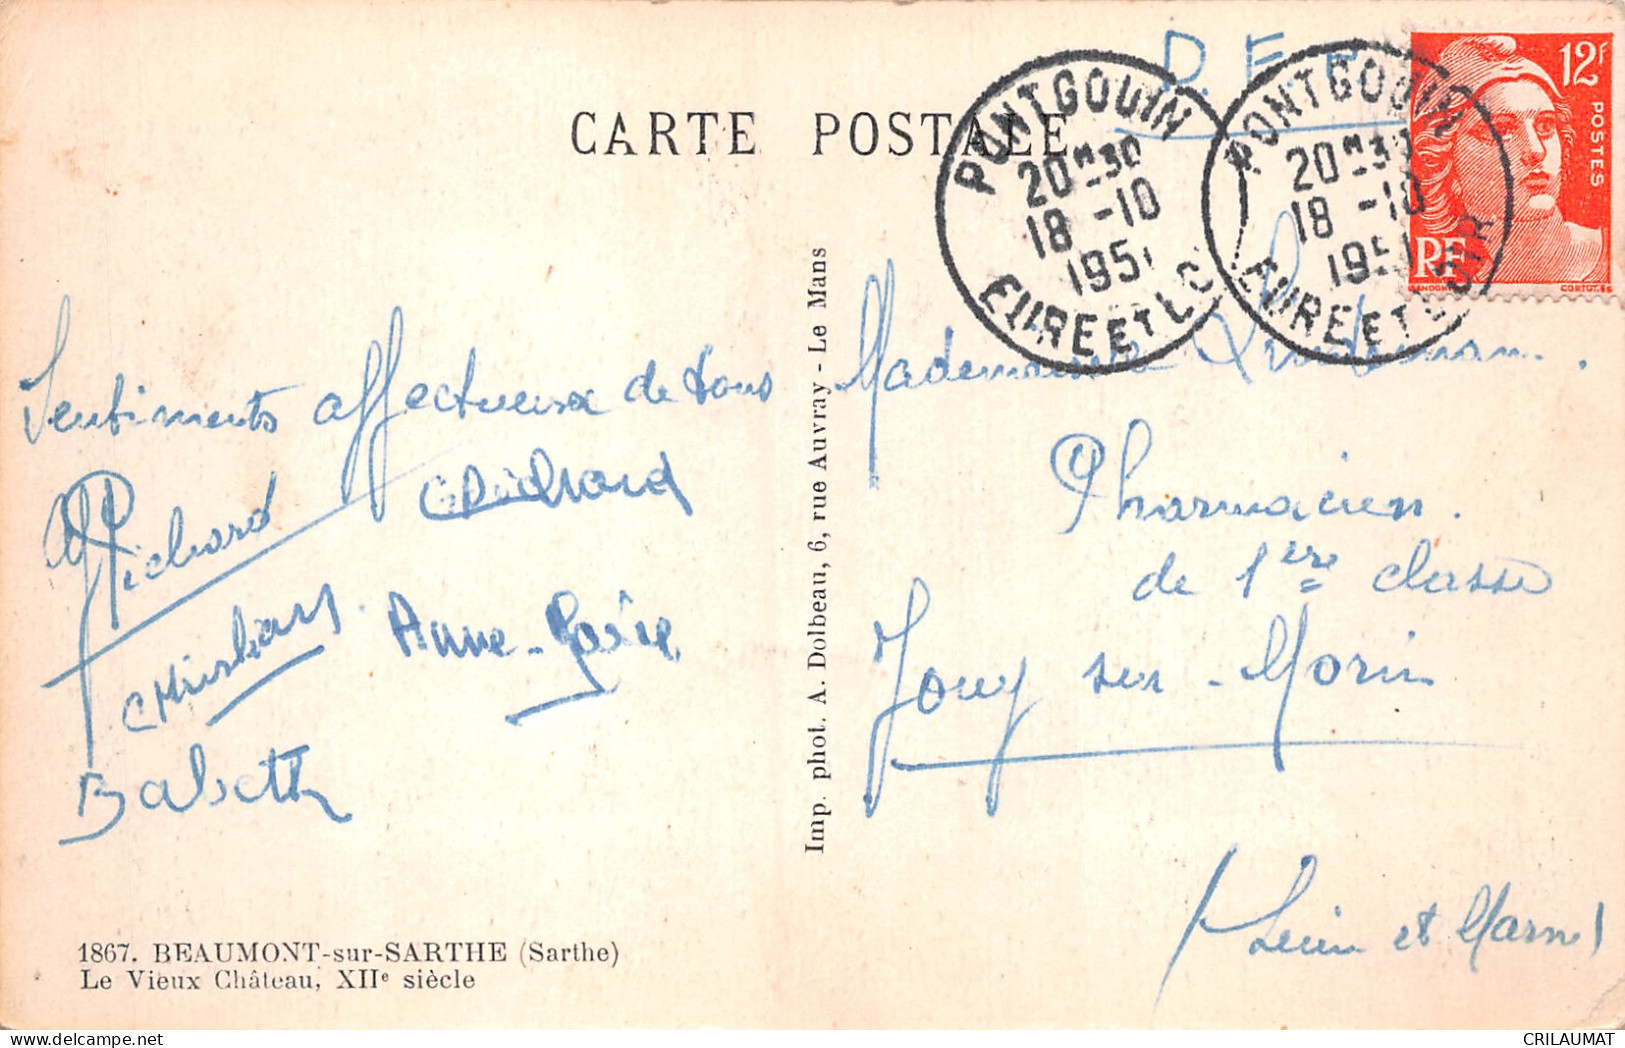 CARTE POSTALE
PONTGOUIN
20H30
18-10
1951
EURE ET LOIR
PONTGOUIN
20H30
18-10
1951
EURE ET LOIR
12F
POSTES
RF
Sentiments affectueux de tous
Richard
Richard
Christian
Anne-Marie
Babeth
1867. BEAUMONT-sur-SARTHE (Sarthe)
Le Vieux Château, XIIe siècle
Imp. phot. A. Dolbeau, 6, rue Auvray - Le Mans
Mademoiselle
Pharmacien.
de 1ère classe
Jouy sur-Morin
Seine et Marne
CRILAUMAT